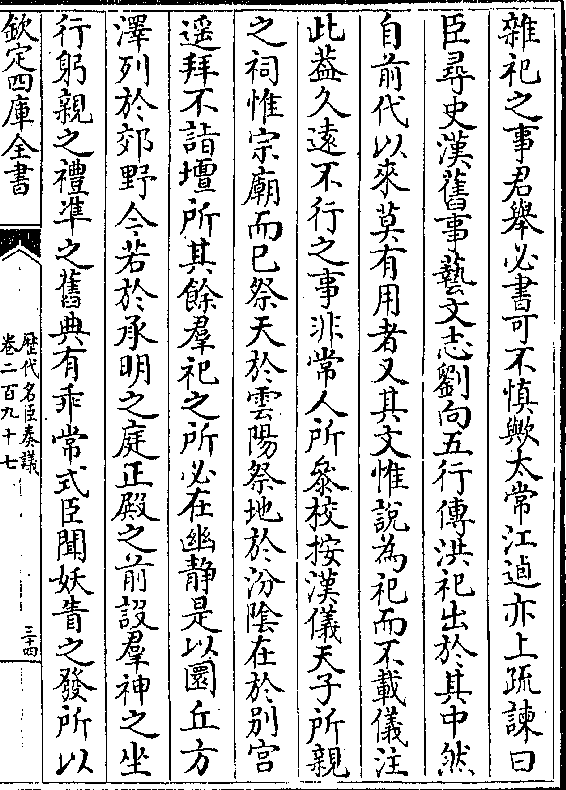 雜祀之事君舉必書可不慎歟太常江逌亦上疏諫曰
臣尋史漢舊事藝文志劉向五行傳洪祀出於其中然
自前代以來莫有用者又其文惟說為祀而不載儀注
此葢久遠不行之事非常人所叅校按漢儀天子所親
之祠惟宗廟而已祭天於雲陽祭地於汾陰在於别宫
遥拜不詣壇所其餘羣祀之所必在幽静是以圜丘方
澤列於郊野今若於承明之庭正殿之前設羣神之坐
行躬親之禮凖之舊典有乖常式臣聞妖眚之發所以
欽定四庫全書
歴代名臣奏議
卷二百九十七
三十四